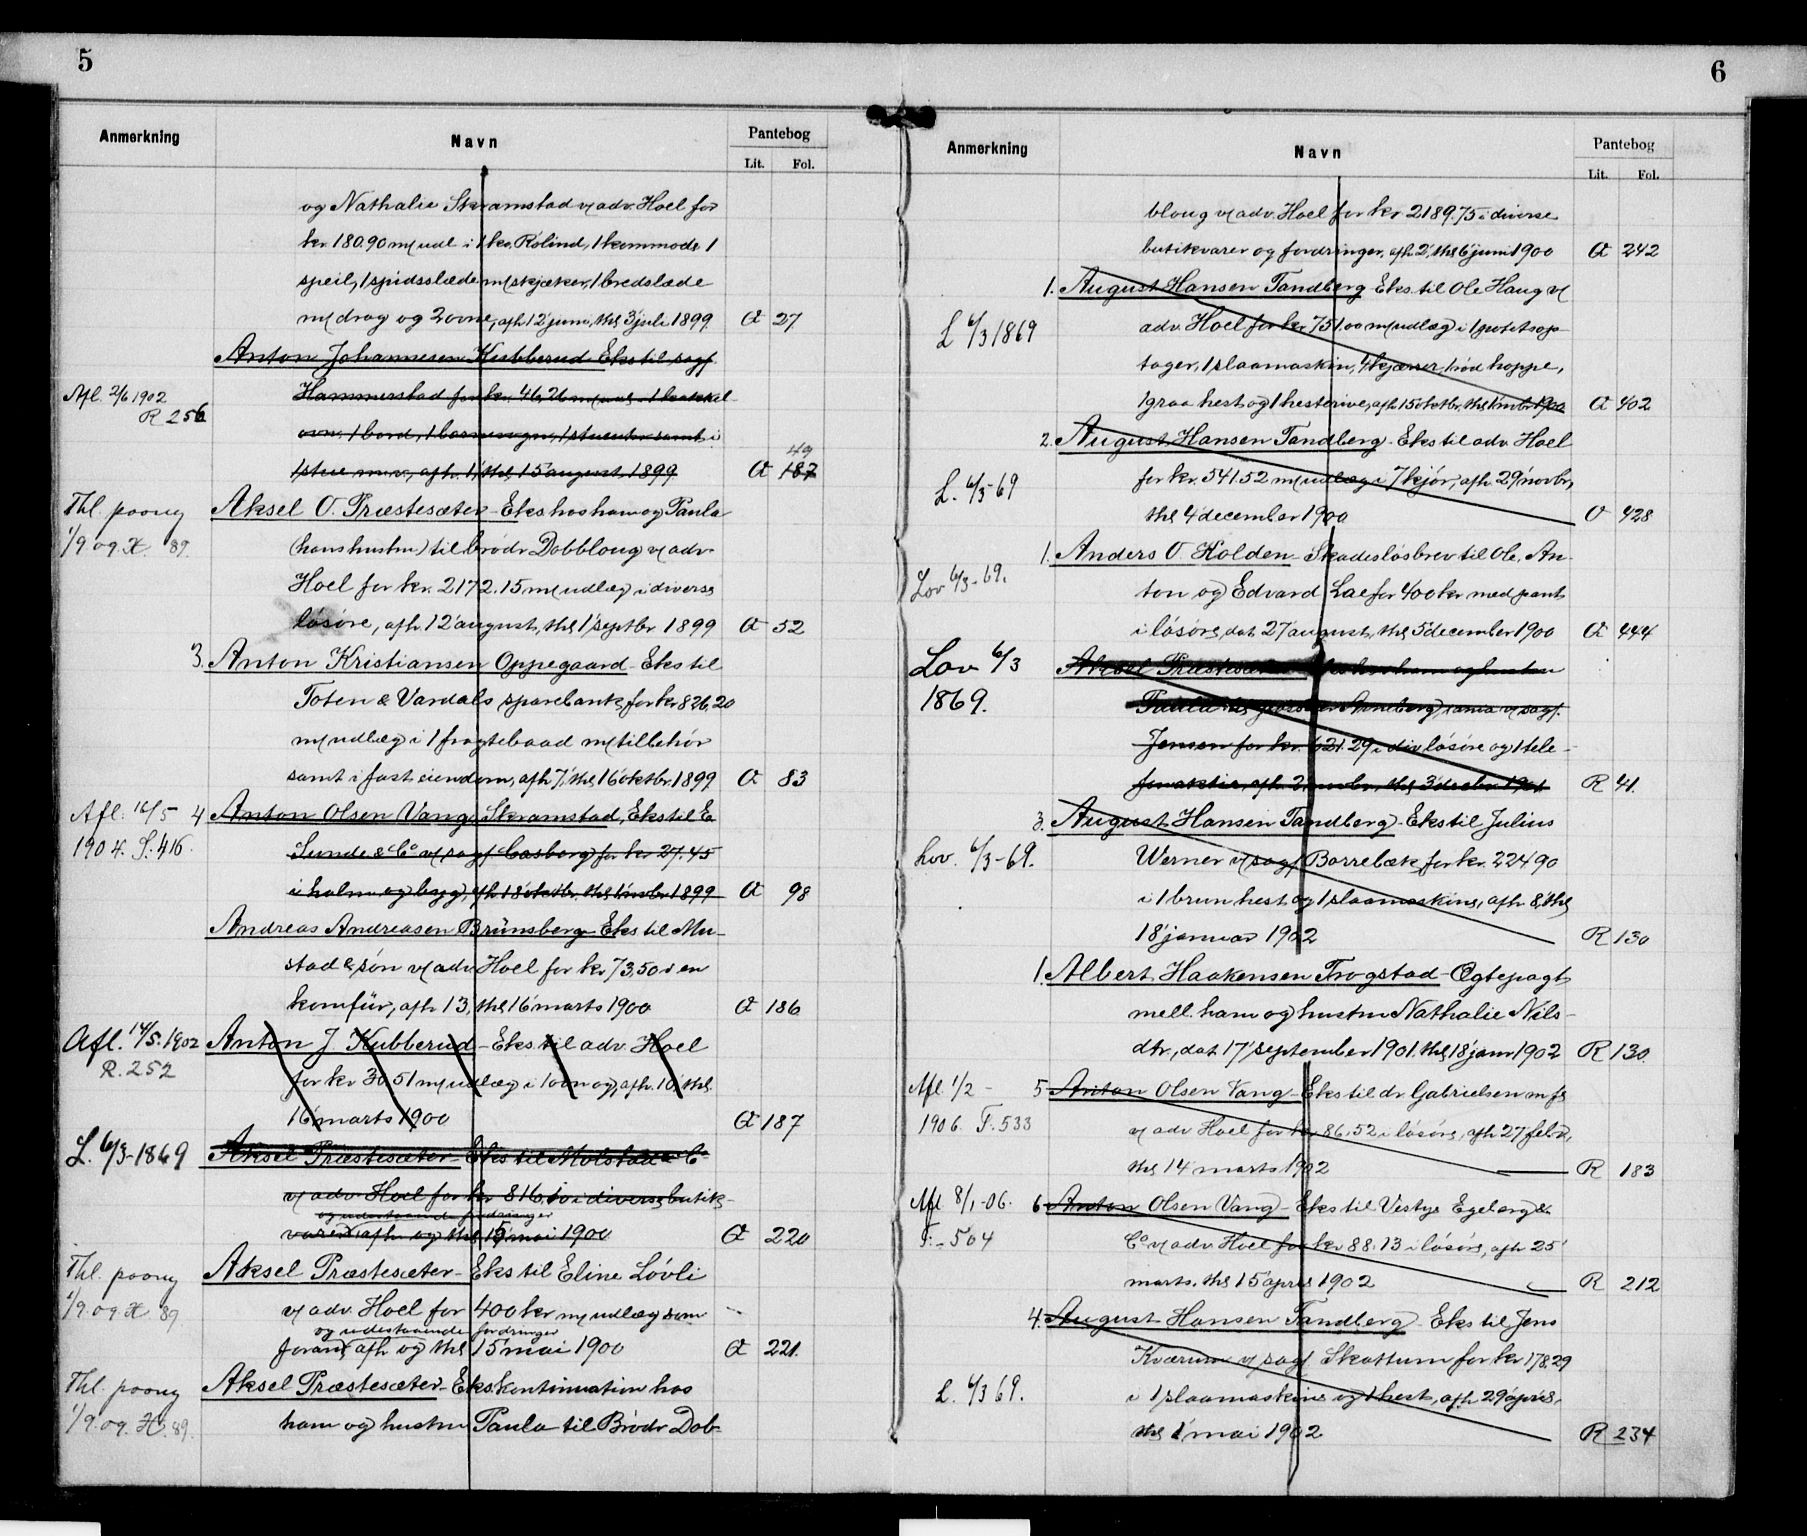 5
Anmerkning
Navn
Pantebog
Lit. Fol.
og Nathalie Skramstad v/ adv. Hoel for
kr 180.90 m/ udl i 1 ko, Rólind, 1 kommode 1
speil, 1 spidsslæde m/ skjæker, 1 bredslæde
m/ drag og 2 ovne, afh 12' juni, thl 3' juli 1899 O 27
Anton Johannesen Kubberud Eks til sagf.
Afl. 2/6 1902 Hammerstad for kr. 46,26 m/ udl. i 1 kakkel-
R 256 ovn, 1 bord, 1 barnevogn, 1 stueuhr samt i
1 stue m.v., afh. 1', thl 15' august 1899 O 187 49
Thl. paany Aksel O. Præstesæter - Eks hos ham og Paula
1/9 09. H. 89. (hans hustru) til brødr Dobbloug v/ adv
Hoel for kr. 2172.15 m/ udlæg i diverse
løsøre, afh. 12' august, thl 1' septbr 1899 O 52
3. Anton Kristiansen Oppegaard - Eks til
Toten & Vardals sparebank, for kr 826,20
m/ udlæg i 1 fragtebaad m/ tilbehør
samt i fast eiendom, afh 7', thl 16' oktbr. 1899 O 83
Afl. 16/5 4 Anton Olsen Vang, Skramstad, Eks til E
1904. S: 416. Sunde & Co v/ sagf Casborg for kr 27.45
i halm og byg, afh 18' oktbr. thl 1' novbr 1899 O 98
Andreas Andreasen Brünsberg - Eks til Mu-
stad & søn v/ adv Hoel for kr 73,50 i en
komfür, afh 13, thl 16' marts 1900 O 186
Afl. 14/5. 1902 Anton J. Kubberud - Eks. til adv. Hoel
R. 252 for kr 30.51 m/ udlæg i 1 ovn og, afh. 10', thl.
16' marts 1900 O 187
L. 6/3-1869 Aksel Præstesæter - Eks til Molstad & Co
v/ adv. Hoel for kr 816,10 i diverse butik-
og udestaaende fordringer
varer, afh og thl 15' mai 1900 O 220
Thl. paany Aksel Præstesæter - Eks til Eline Løvli
1/9. 09 H 89. v/ adv. Hoel for 400 kr m/ udlæg som
og udestaaende fordringer
foran, afh og thl 15' mai 1900 O 221.
Thl. paany Aksel Præstesæter - Ekskontinuation hos
1/9. 09. H. 89. ham og hustru Paula til Brødr Dob-
6
Anmerkning
Navn
Pantebog
Lit. Fol.
bloug v/ adv. Hoel for kr 2189.75 i diverse
butikvarer og fordringer, afh 2', thl 6' juni 1900 O 242
1. August Hansen Tandberg Eks til Ole Haug v/
L 6/3 1869 adv Hoel for kr 751.00 m/ udlæg i 1 potetop-
tager, 1 slaamaskin, 4 kjærrer, 1 rød hoppe,
1 graa hest og 1 hesterive, afh 15' oktbr, thl 1' nvbr 1900 O 402
2. August Hansen Tandberg - Eks til adv. Hoel
L. 6/3-69 for kr. 541.52 m/ udlæg i 7 kjør, afh 29' novbr,
thl 4' december 1900 O 428
1. Anders O. Holden - Skadesløsbrev til Ole, An-
Lov 6/3-69. ton og Edvard Lae for 400 kr med pant
i løsøre, dat 27' august, thl 5' december 1900 O 444
Lov 6/3 Aksel Præstesæter - Eks hos ham og hustru
1869. Paula v/ sagf.
Jensen for kr. 621.29 i div løsøre og 1 tele-
fonaktie, afh. 2' novbr, thl 3' decbr 1901 R 41.
3. August Hansen Tandberg - Eks til Julius
Lov. 6/3-69. Werner v/ sagf Borrebæk, for kr. 224 90
i 1 brun hest og 1 slaamaskine, afh 8', thl
18' januar 1902 R 130
1. Albert Haakensen Frogstad - Ægtepagt
mell. ham og hustru Nathalie Nils-
dtr., dat 17' september 1901. thl 18' janr 1902 R 130.
Afl 1/2 - 5 Anton Olsen Vang - Eks til dr. Gabrielsen m fl
1906. T. 533 v/ adv Hoel for kr 86.52 i løsøre, afh 27' febr,
thl 14' marts 1902 R 183
Afl 8/1-06. 6 Anton Olsen Vang - Eks til Vestye Egeberg &
T: - 504 Co v/ adv. Hoel for kr 88.13 i løsøre, afh 25'
marts. thl 15' april 1902 R 212
4. August Hansen Tandberg - Eks til Jens
Kværum v/ sagf Skattum for kr 178.29
L. 6/3 69. i 1 slaamaskine og 1 hest, afh 29' april,
thl 1' mai 1902 R 234